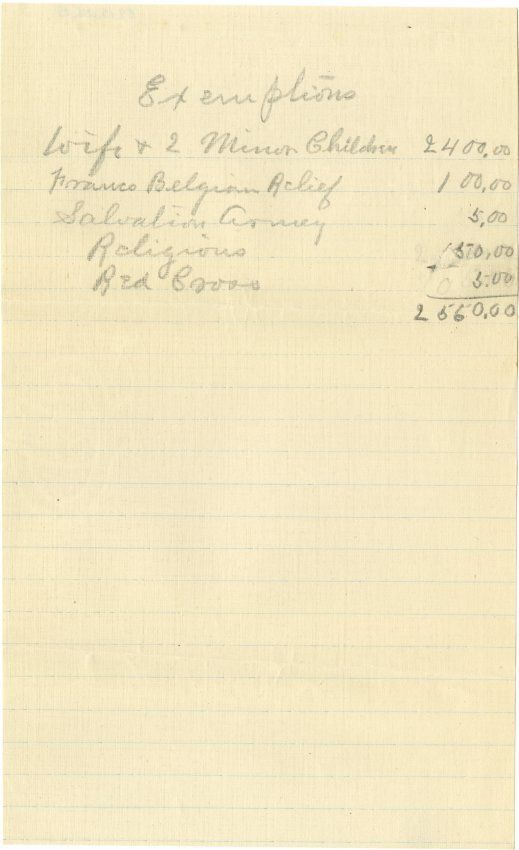 Exemptions
Wife & 2 Minor Children 2400,00
Franco Belgian Relief 100,00
Salvation Army 5,00
Religious 50,00
Red Cross 5.00
2560,00